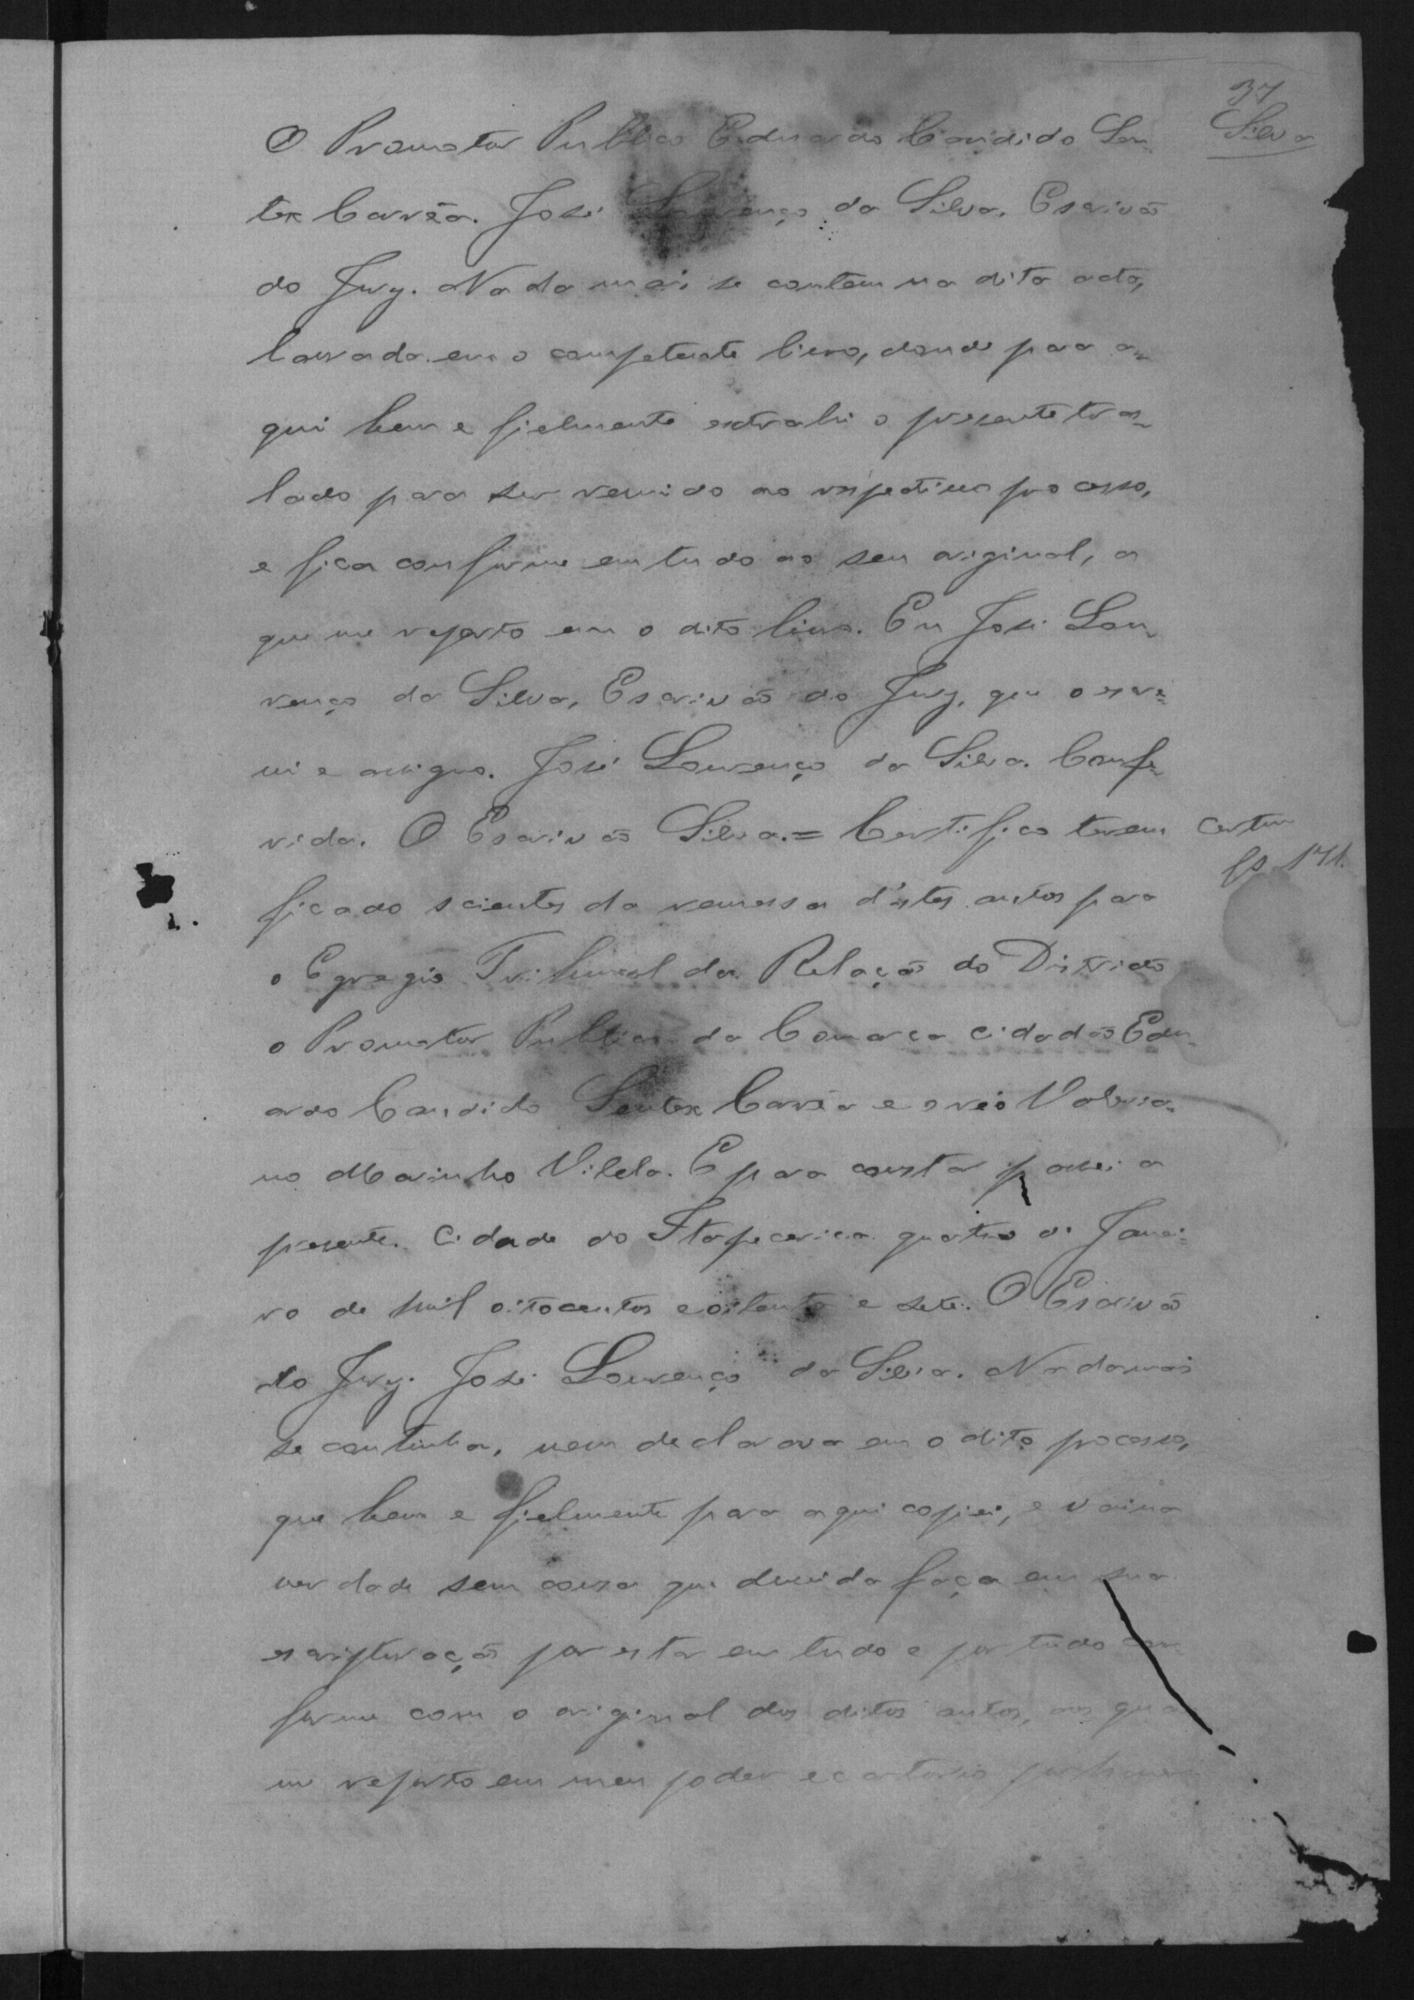 37
Silva
O Promotor Publico Eduardo Candido Sen
tex Corrêa. José Lourenço da Silva, Escrivão
do Jury. Nada mais se contem na dita acta,
lavrada em o competente livro, donde para a-
qui bem e fielmente extrahi o presente tras-
lado para ser reunido ao respectivo processo,
e fica conforme em tudo ao seu original, a
que me reporto em o dito livro. Eu José Lou
renço da Silva, Escrivão do Jury, que o escre-
vi e assigno. José Lourenço da Silva. Confe-
rida. O Escrivão Silva. = Certifico terem
fs 171.
ficado scientes da remessa d'estes autos para
o Egregio Tribunal da Relação do Districto
o Promotor Publico da Comarca cidadão Edu
ardo Candido Sentex Corrêa e o réo Valeria-
no Marinho Vilela. E para constar passei a
presente. Cidade do Itapecerica quatro de Janei-
ro de mil oitocentos e oitenta e sete. O Escrivão
do Jury. José Lourenço da Silva. Nada mais
se continha, nem declarava em o dito processo,
que bem e fielmente para aqui copiei, e vai na
verdade sem cousa que duvida faça em sua
escripturação por estar em tudo e por tudo con
forme com o original dos ditos autos, aos qua
me reporto em meu poder e cartorio